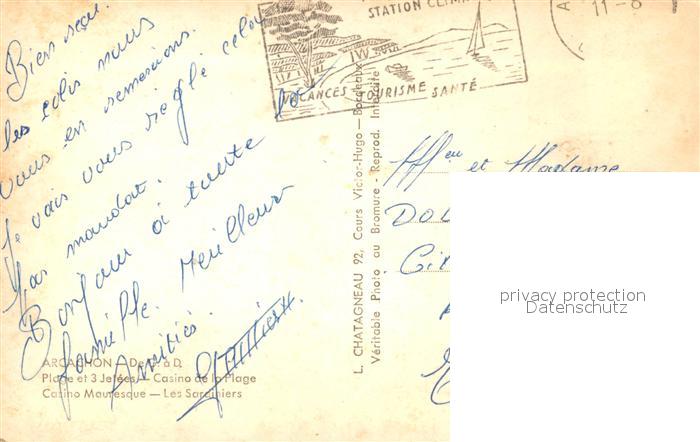 Bien reçu
les colis nous
vous en remercions.
Je vais vous réglé cela
par mandat.
Bonjour à toute
la famille. Meilleures
Amitiés.
STATION CLIMA
VACANCES TOURISME SANTÉ
11-8
L. CHATAGNEAU 92, Cours Victor-Hugo — Bordeaux
Véritable Photo au Bromure - Reprod. Interdite
et Madame
DOU
Cit
privacy protection
Datenschutz
ARCACHON — De G. à D.
Plage et 3 Jetées — Casino de la Plage
Casino Mauresque — Les Sardiniers